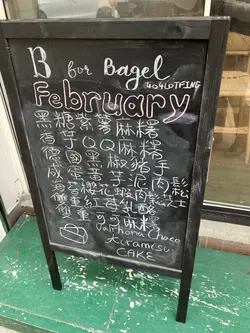 B for Bagel
February
黑糖紫薯麻糬
香芋QQ麻糬
德國黑椒豬手
咸蛋黃芋泥肉鬆
海苔櫻花蝦肉鬆芝士
重紅莓乳酪
重可可麻糬
Valrhona Choco
Tiramisu
CAKE